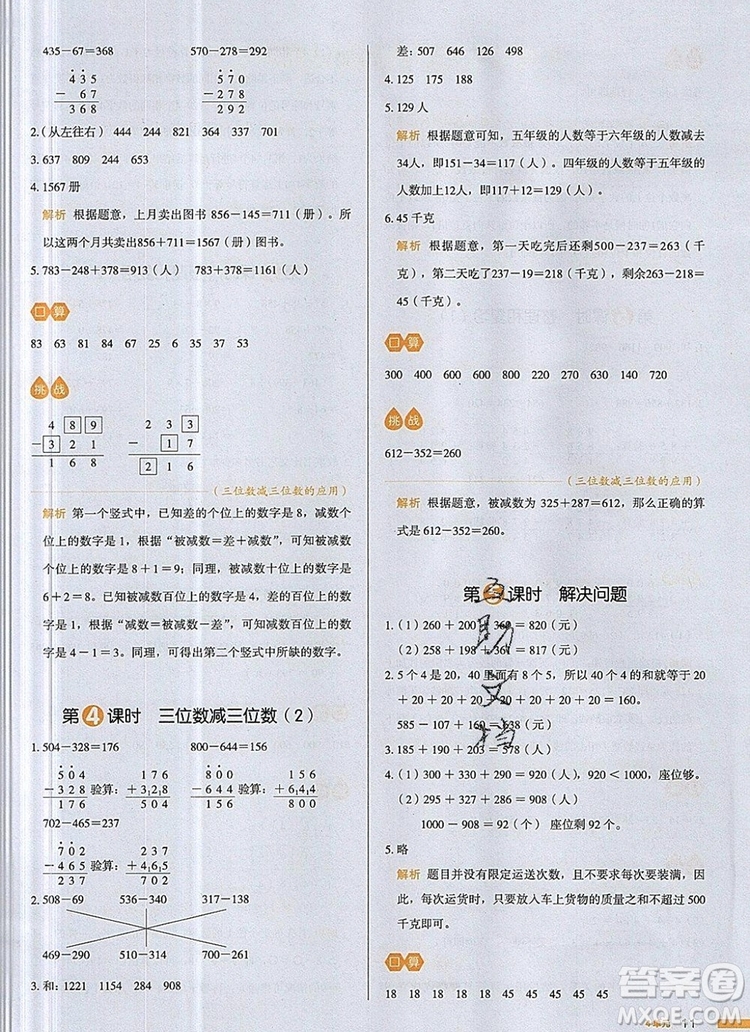 435－67＝368　570－278＝292
4 3 5　5 7 0
－ 6 7　－2 7 8
3 6 8　2 9 2
2.(从左往右) 444 244 821 364 337 701
3. 637 809 244 653
4. 1567 册
解析 根据题意，上月卖出图书 856－145＝711（册）。所
以这两个月共卖出856＋711＝1567（册）图书。
5. 783－248＋378＝913（人）　783＋378＝1161（人）
口算
83 63 81 84 67 25 6 35 37 53
挑战
4 8 9　2 3 3
－3 2 1　－ 1 7
1 6 8　2 1 6
（三位数减三位数的应用）
解析 第一个竖式中，已知差的个位上的数字是 8，减数个
位上的数字是 1，根据“被减数＝差＋减数”，可知被减数个
位上的数字是 8＋1＝9；同理，被减数十位上的数字是
6＋2＝8。已知被减数百位上的数字是 4，差的百位上的
数字是 1，根据“减数＝被减数－差”，可知减数百位上的数
字是 4－1＝3。同理可得出第二个竖式中所缺的数字。
第4课时　三位数减三位数（2）
1. 504－328＝176　800－644＝156
5 0 4　1 7 6　8 0 0　1 5 6
－3 2 8 验算：＋3 2 8　－6 4 4 验算：＋6 4 4
1 7 6　5 0 4　1 5 6　8 0 0
702－465＝237
7 0 2　2 3 7
－4 6 5 验算：＋4 6 5
2 3 7　7 0 2
2. 508－69　536－340　735－438
469－290　510－314　907－610
3. 和：1221 1154 284 908
差：507 646 126 498
4. 125 175 188
5. 129 人
解析 根据题意可知，五年级的人数等于六年级的人数减去
34人，即151－34＝117（人）。四年级的人数等于五年级
的人数加上12人，即117＋12＝129（人）。
6. 45 千克
解析 根据题意，第一天吃完后还剩500－237＝263（千
克），第二天吃了237－19＝218（千克），剩余263－218＝
45（千克）。
口算
300 400 600 600 800 220 630 390 140 720
挑战
612－352＝260
（三位数减三位数的应用）
解析 根据题意，被减数为 325＋287＝612，那么正确的算
式是 612－352＝260。
第 课时　解决问题
1.（1）260＋200＋360＝820（元）
（2）258＋198＋361＝817（元）
2. 5 个 4 是 20，40 里面有 8 个 5，所以 40 个 4 和就等于 20
＋20＋20＋20＋20＋20＋20＋20
585－107＋160＝638（元）
3. 185＋190＋198＝573（元）
4.（1）300＋330＋290＝920（人） 920＜1000，座位够。
（2）295＋327＋286＝908（人）
1000－908＝92（个） 座位剩 92 个。
5. 略
解析 题目并没有限定运送次数，也没有要求要装满，因
此，每次运货时，只要放入车上货物的质量之和不大于 500
千克即可。
口算
18 18 18 18 18 45 45 45 45 45
互助文档
答案圈